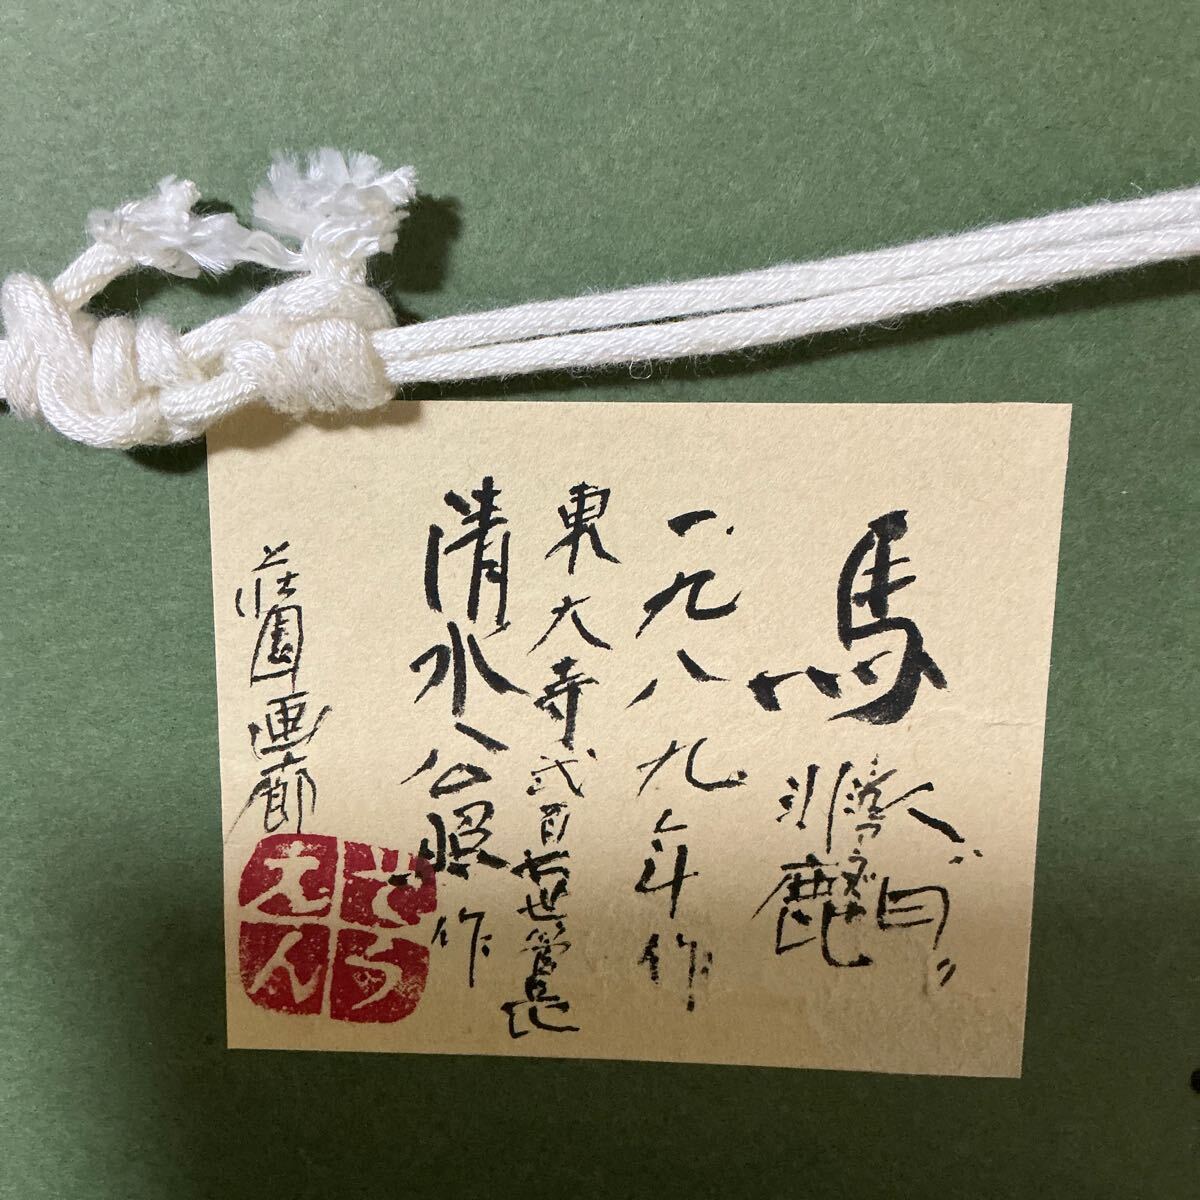 馬
非鹿
曰ク
一九八九年作
東大寺弐百七世管長
清水公照作
荘園画廊
そう
えん